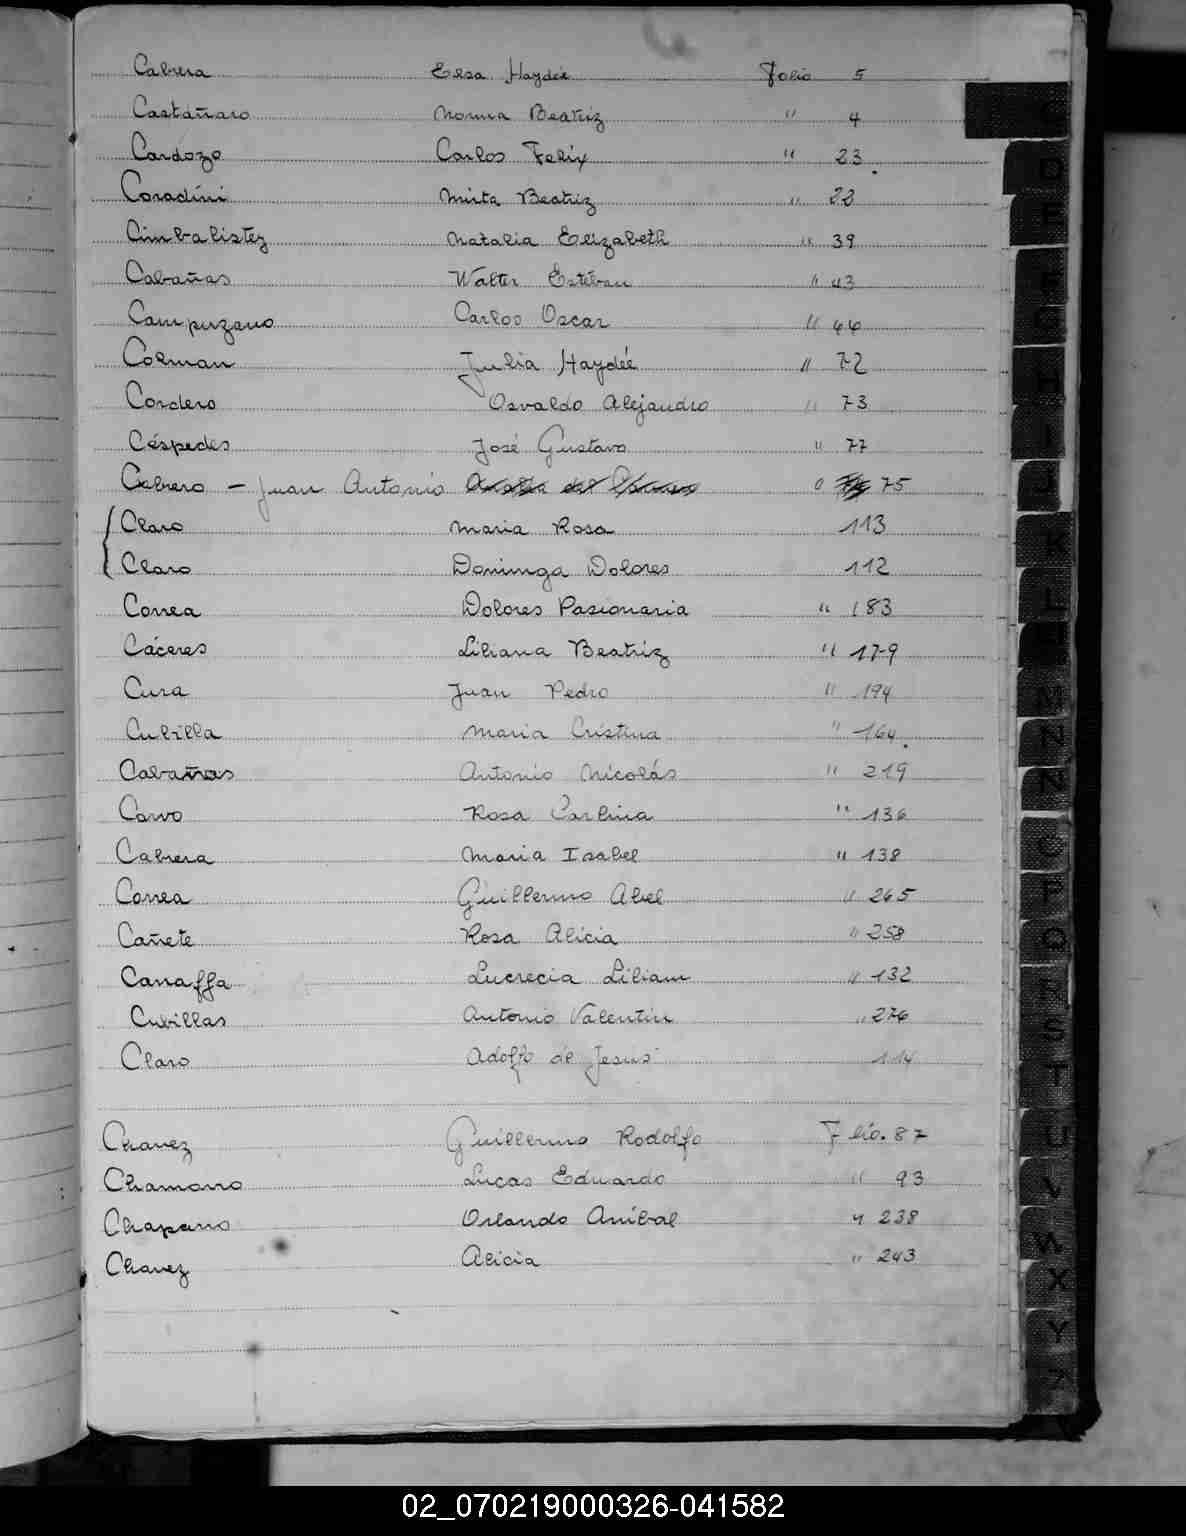 Cabrera Elsa Haydée Folio 5
Castañaro Norma Beatriz " 4
Cardozo Carlos Felix " 23
Coradini Mirta Beatriz " 22
Cimbalistez Natalia Elizabeth " 39
Cabañas Walter Estéban " 43
Campuzano Carlos Oscar " 44
Colman Julia Haydée " 72
Cordero Osvaldo Alejandro " 73
Céspedes José Gustavo " 77
Cabrero - Juan Antonio 75
Claro Maria Rosa 113
Claro Dominga Dolores 112
Correa Dolores Pasionaria " 183
Cáceres Liliana Beatriz " 179
Cura Juan Pedro " 194
Cubilla Maria Cristina " 164
Cabañas Antonio Nicolás " 219
Carvo Rosa Carlina " 136
Cabrera Maria Isabel " 138
Correa Guillermo Abel " 265
Cañete Rosa Alicia " 258
Canaffa Lucrecia Liliam " 132
Cubillas Antonio Valentin " 276
Claro Adolfo de Jesus 114
Chavez Guillermo Rodolfo Folio. 87
Chamorro Lucas Eduardo " 93
Chaparro Orlando Anibal " 238
Chavez Alicia " 243
C
D
E
F
G
H
I
J
K
L
LL
M
N
Ñ
O
P
Q
R
S
T
U
V
W
X
Y
Z
02_070219000326-041582